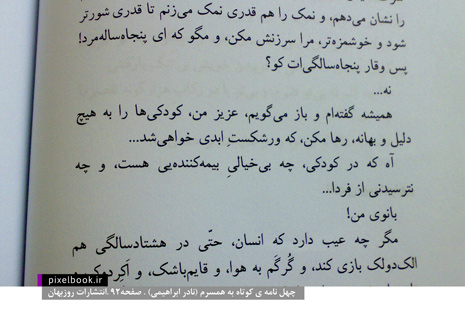 را نشان می‌دهم، و نمک را هم قدری نمک می‌زنم تا قدری شورتر
شود و خوشمزه‌تر، مرا سرزنش مکن، و مگو که ای پنجاه‌ساله‌مرد!
پس وقار پنجاه‌سالگی‌ات کو؟
نه...
همیشه گفته‌ام و باز می‌گویم، عزیز من، کودکی‌ها را به هیچ
دلیل و بهانه، رها مکن، که ورشکستِ ابدی خواهی‌شد...
آه که در کودکی، چه بی‌خیالیِ بیمه‌کننده‌یی هست، و چه
نترسیدنی از فردا...
بانوی من!
مگر چه عیب دارد که انسان، حتّی در هشتادسالگی هم
الک‌دولک بازی کند، و گُرگم به هوا، و قایم‌باشک، و اَکردوکر، و
pixelbook.ir
چهل نامه ی کوتاه به همسرم (نادر ابراهیمی) . صفحه۹۲ .انتشارات روزبهان